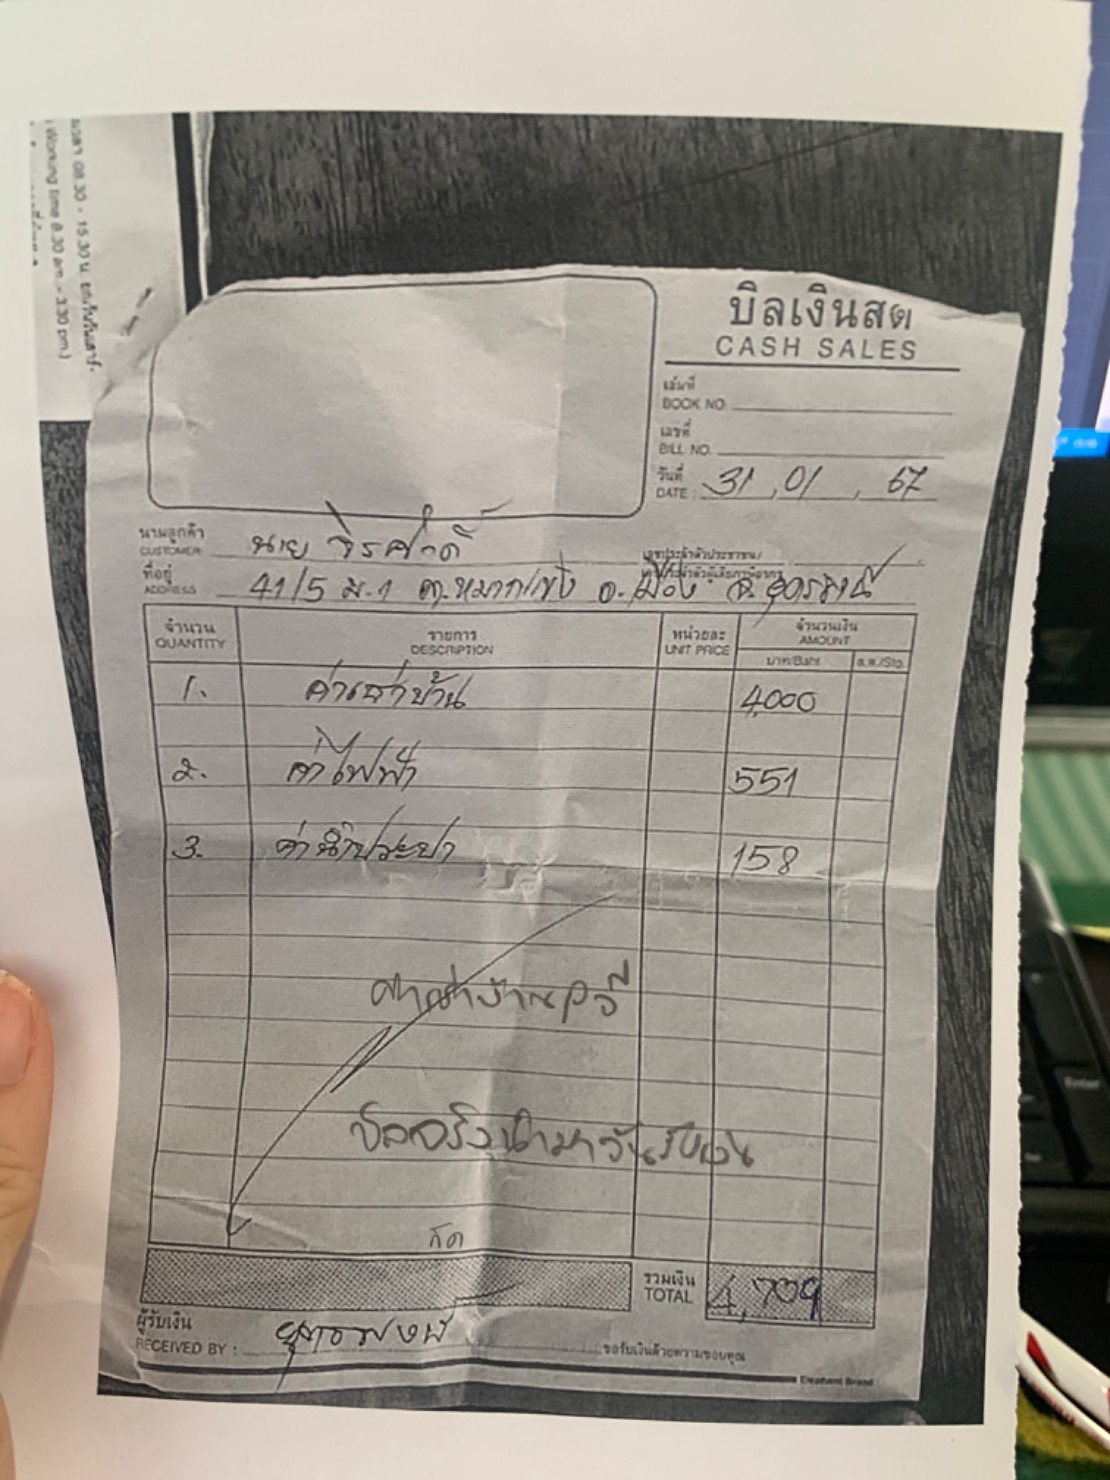 เวลา 08.30 - 15.30 น.
Working time 8.30 am. - 3.30 pm.)
บิลเงินสด
CASH SALES
เล่มที่
BOOK NO.
เลขที่
BILL NO.
วันที่
DATE : 31 , 01 , 67
นามลูกค้า
CUSTOMER นาย จิรศักดิ์
เลขประจำตัวประชาชน/
ที่อยู่
ADDRESS 41/5 ม.1 ต.หมากแข้ง อ.เมือง จ.อุดรธานี
จำนวน รายการ หน่วยละ จำนวนเงิน
QUANTITY DESCRIPTION UNIT PRICE AMOUNT
บาท/Baht ส.ต./Stg.
1. ค่าเช่าบ้าน 4,000
2. ค่าไฟฟ้า 551
3. ค่าน้ำประปา 158
บิลจริงนำมาวันรับเงิน
รวมเงิน
TOTAL 4,709
ผู้รับเงิน
RECEIVED BY :
ขอรับเงินด้วยความขอบคุณ
Elephant Brand
Enter